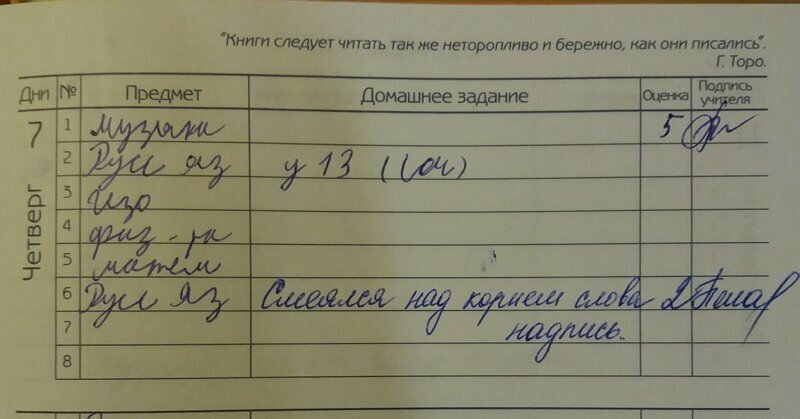 "Книги следует читать так же неторопливо и бережно, как они писались".
Г. Торо.
Дни № Предмет Домашнее задание Оценка Подпись учителя
7 Четверг
1 музыка 5
2 Русс яз у 13
3 изо
4 физ-ра
5 матем
6 Русс Яз Смеялся над корнем слова 2
7 надпись.
8